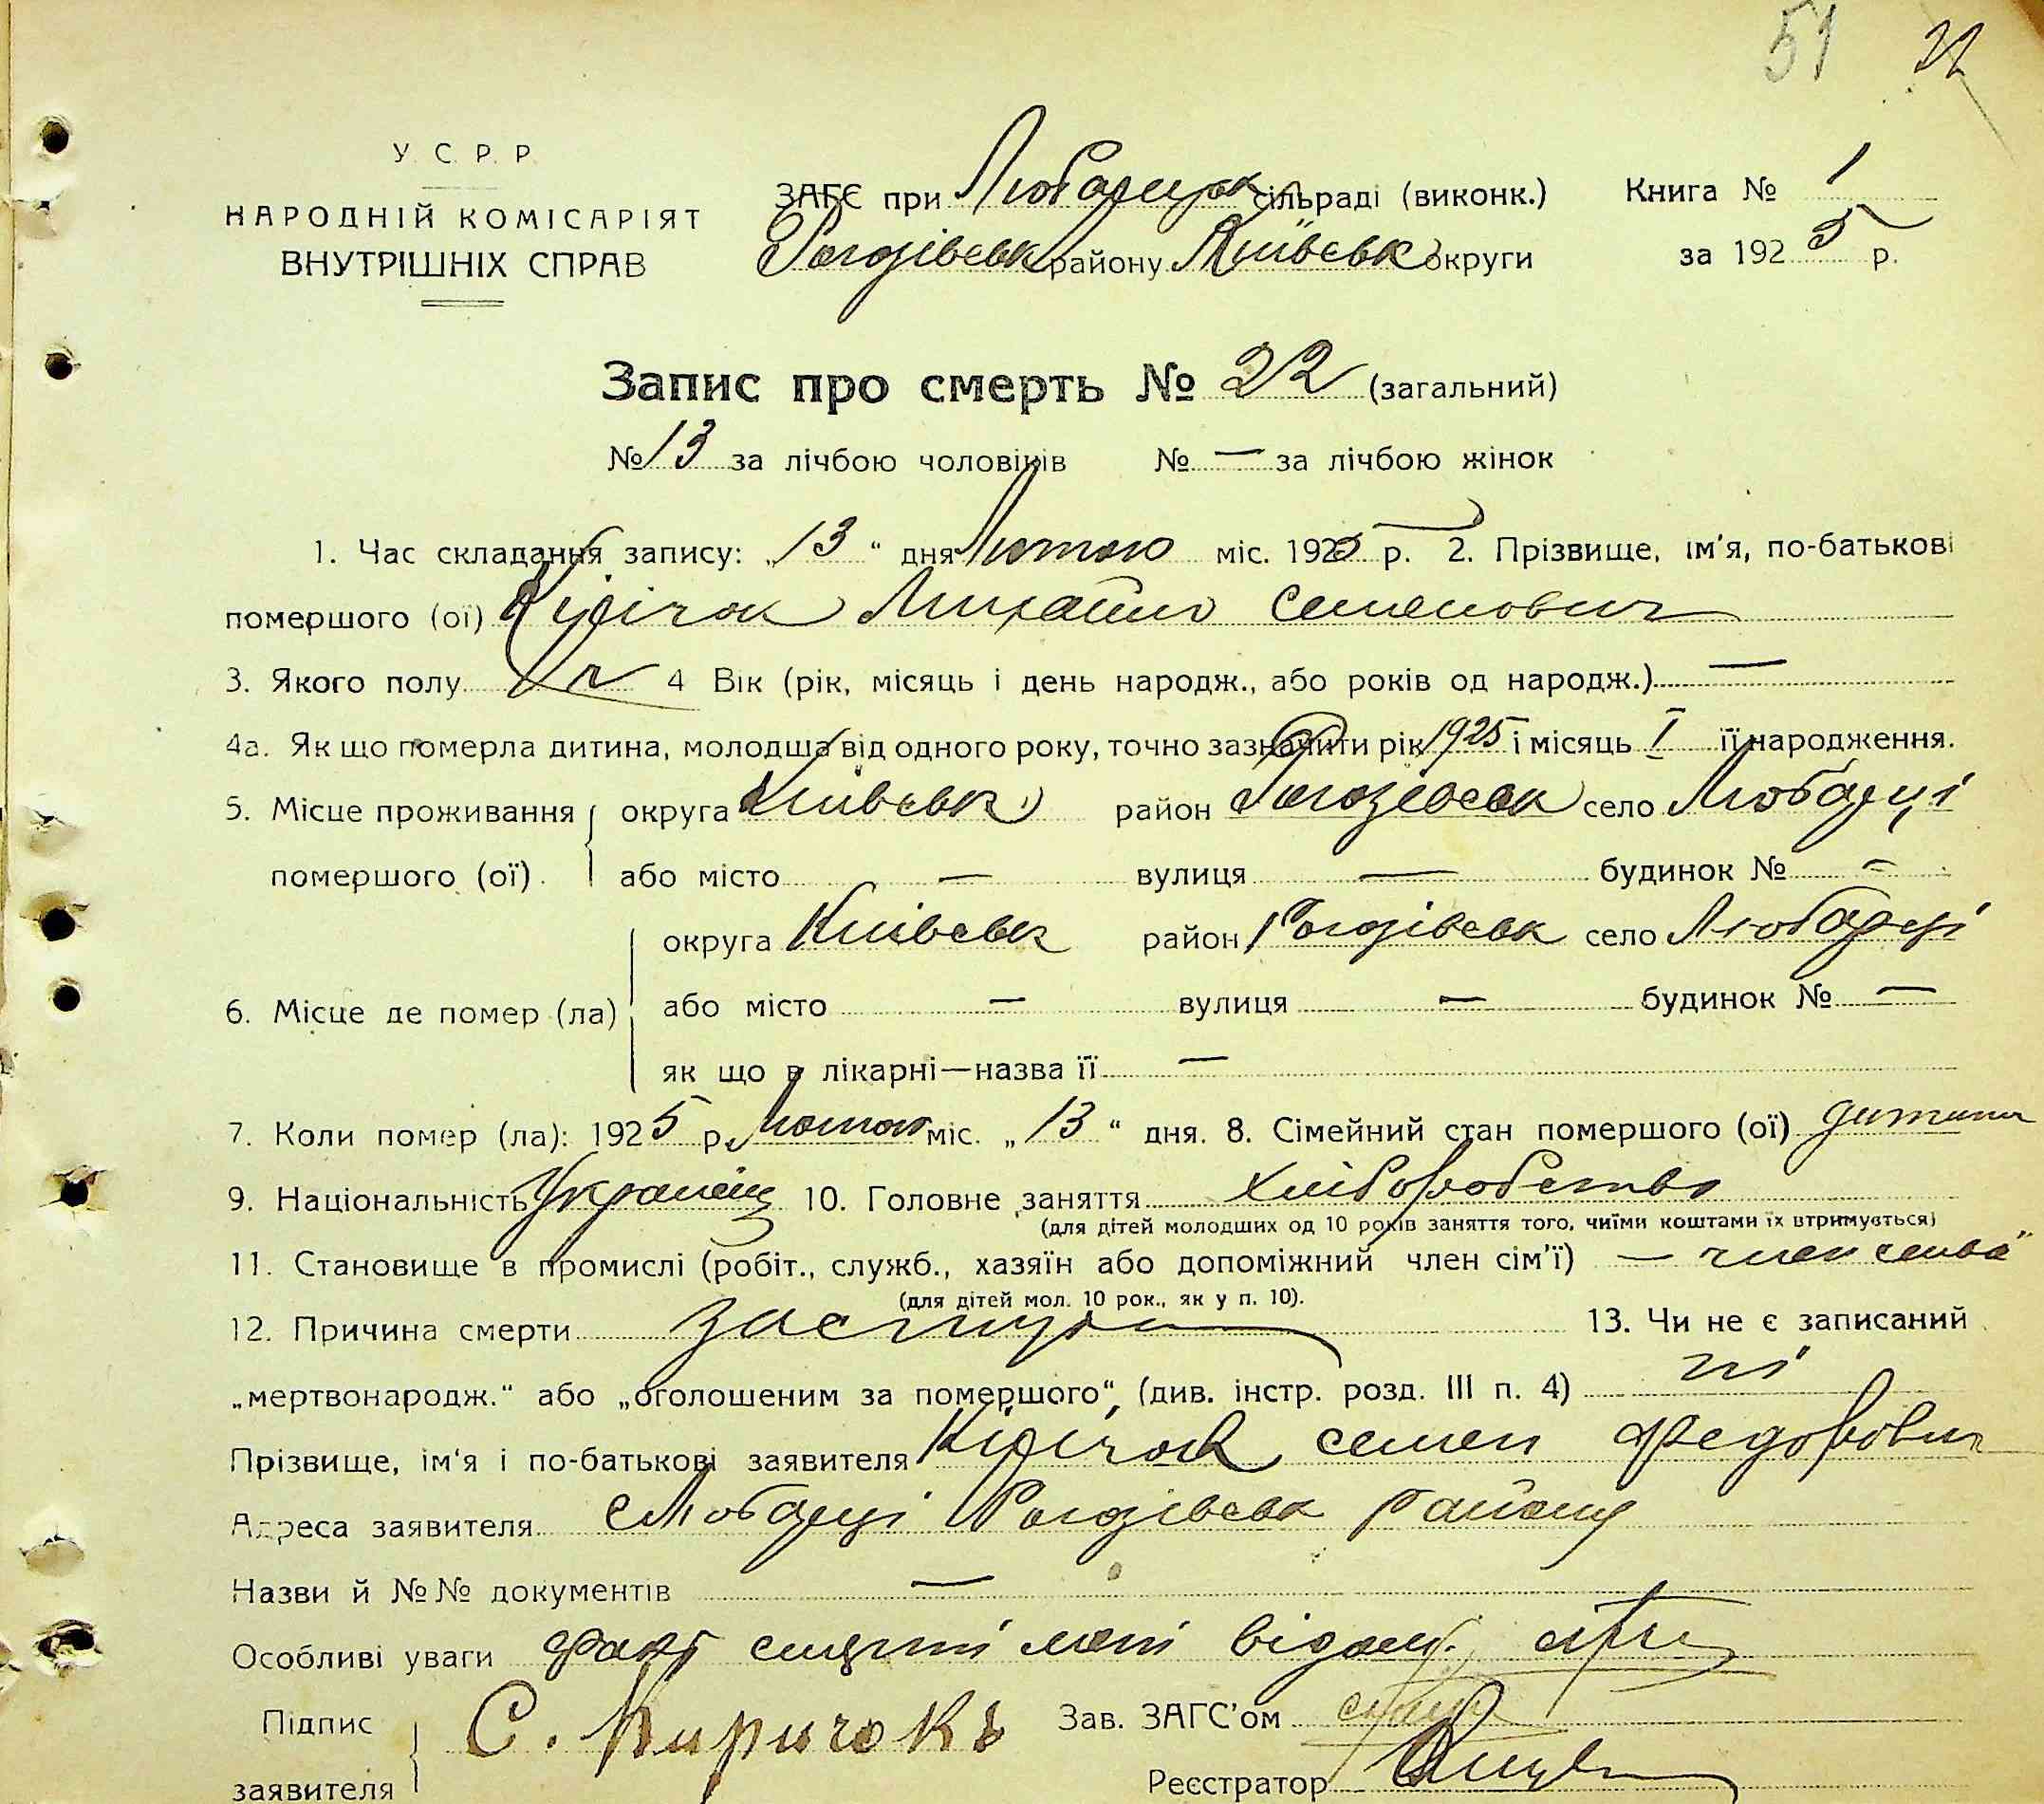 51 22
У. С. Р. Р.
НАРОДНІЙ КОМІСАРІЯТ
ВНУТРІШНІХ СПРАВ
ЗАГС при Любарецьк сільраді (виконк.)
Рогозівськ району Київськ округи
Книга № 1
за 1925 р.
Запис про смерть № 22 (загальний)
№ 13 за лічбою чоловіків № — за лічбою жінок
1. Час складання запису: „13“ дня Лютого міс. 1925 р. 2. Прізвище, ім'я, по-батькові
помершого (ої) Кірічок Михайло Семенович
3. Якого полу ч 4 Вік (рік, місяць і день народж., або років од народж.) —
4а. Як що померла дитина, молодша від одного року, точно зазначити рік 1925 і місяць I її народження.
5. Місце проживання помершого (ої). округа Київськ район Рогозівськ село Любарці
або місто — вулиця — будинок № —
6. Місце де помер (ла) округа Київськ район Рогозівськ село Любарці
або місто — вулиця — будинок № —
як що в лікарні—назва її —
7. Коли помер (ла): 1925 р. Лютого міс. „13“ дня. 8. Сімейний стан помершого (ої) дитина
9. Національність Українець 10. Головне заняття хліборобство
(для дітей молодших од 10 років заняття того, чиїми коштами їх втримується)
11. Становище в промислі (робіт., служб., хазяїн або допоміжний член сім'ї) — член
(для дітей мол. 10 рок., як у п. 10).
12. Причина смерти застуда 13. Чи не є записаний
„мертвонародж.“ або „оголошеним за помершого“, (див. інстр. розд. III п. 4) ні
Прізвище, ім'я і по-батькові заявителя Кірічок Семен Федорович
Адреса заявителя с Любарці Рогозівськ району
Назви й №№ документів —
Особливі уваги Факт смерті мені відом.
Підпис заявителя С. Киричокъ Зав. ЗАГС'ом
Реєстратор